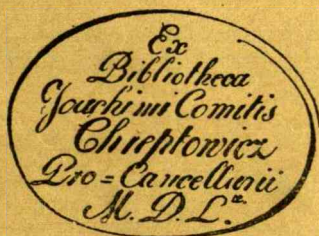 Ex
Bibliotheca
Joachimi Comitis
Chreptowicz
Pro=Cancellarii
M. D. L.æ